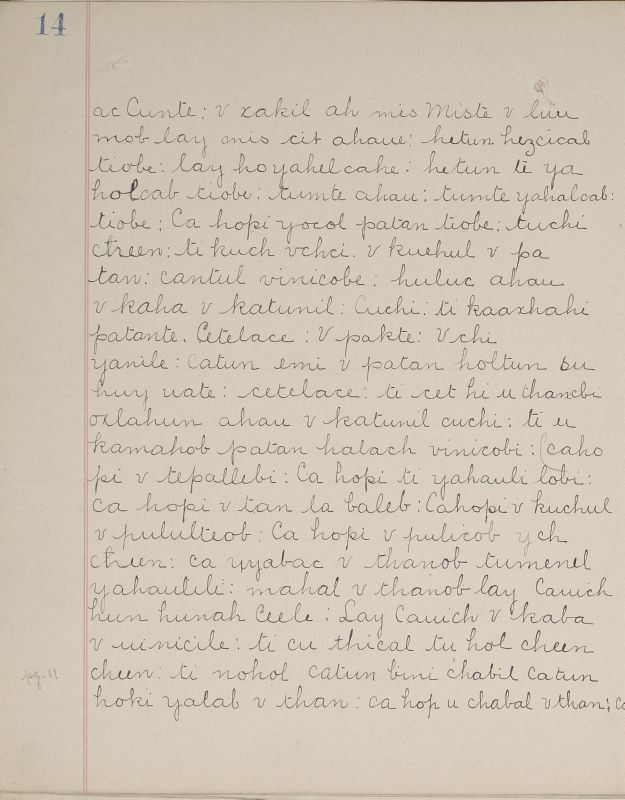 14
ac Cunte: v xakil ah mis Miste v luu
mob lay mis cit ahaue: hetun hezcicab
tiobe: lay hoyahelcahe: hetun te ya
holcab tiobe: tumte ahau: tumte yahalcab:
tiobe: Ca hopi yocol patan tiobe: tuchi
cħeen: ti kuch vchci. v kuchul v pa
tan: cantul vinicobe: huluc ahau
v kaha v katunil: Cuchi: ti kaaxhahi
patante. Cetelace: V pakte: Vchi
yanile: Catun emi v patan holtun su
huy uate: cetelace: ti cet hi u thancbi
oxlahun ahau v katunil cuchi: ti u
kamahob patan halach vinicobi: (caho
pi v tepallebi: Ca hopi ti yahauli lobi:
ca hopi v tan la baleb: Cahopi v kuchul
v pululteob: Ca hopi v pulicob ych
cħeen: ca uyabac v thanob tumenel
yahaulili: mahal v thanob lay Cauich
hun hunah Ceele: Lay Cauich v kaba
v uinicile: ti cu thical tu hol cheen
cheen: ti nohol catun bini chabil catun
pg. 11
hoki yalab v than: ca hop u chabal v than: Ca